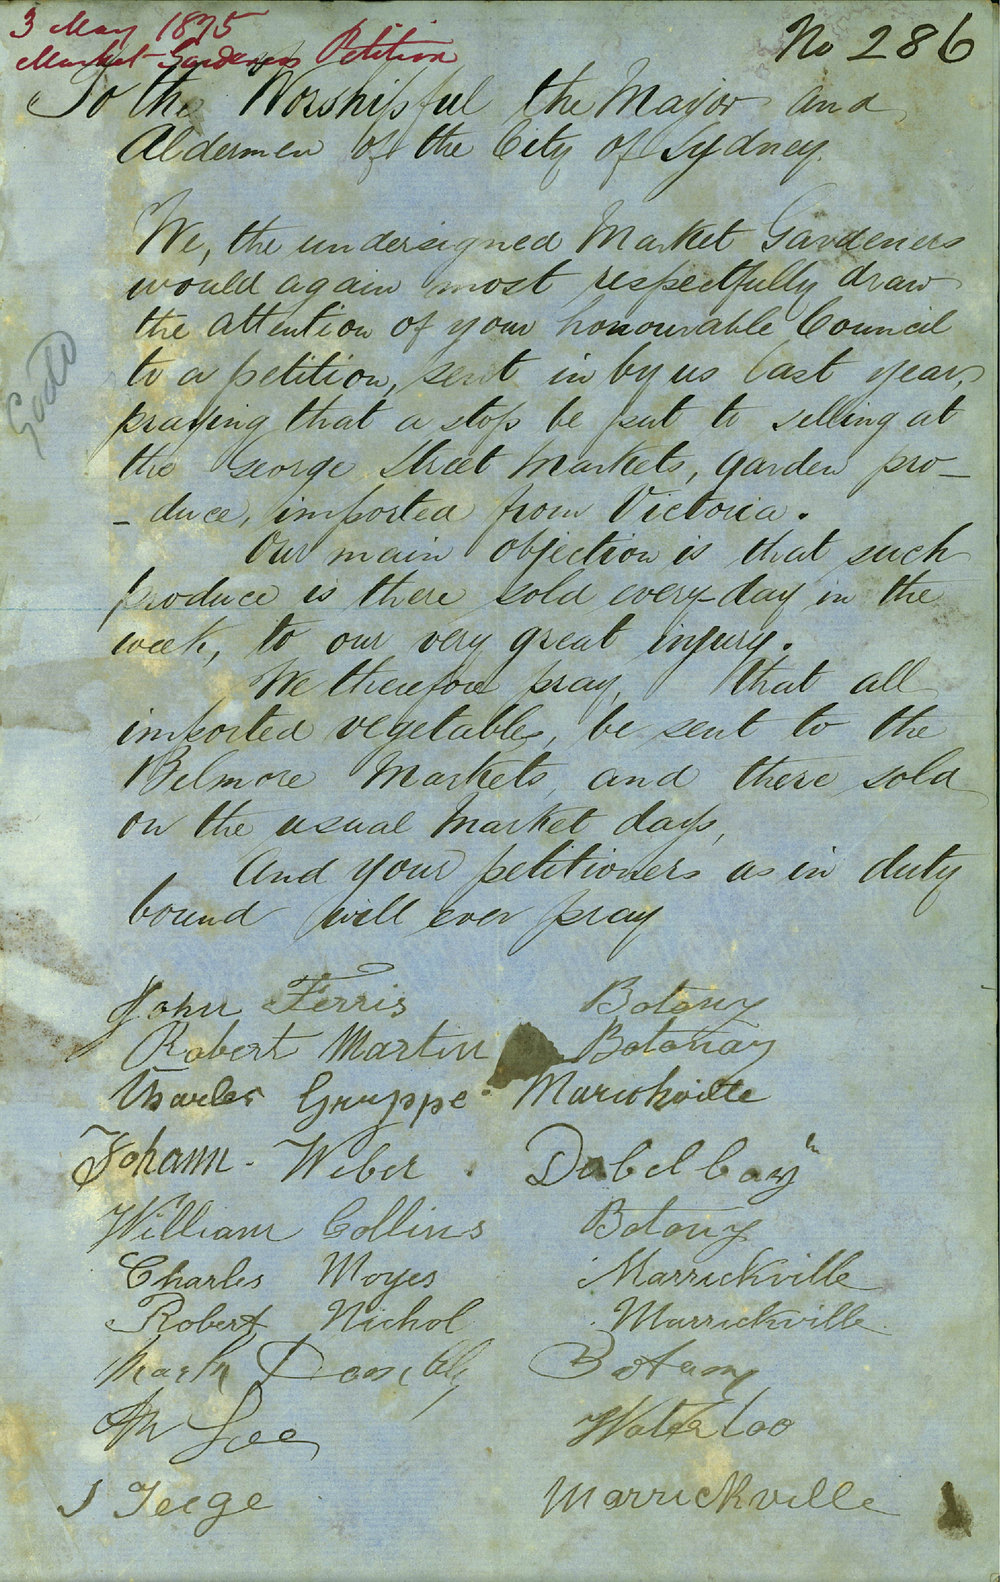 3 May 1875
Market Gardeners Petition
No 286
To the Worshipful the Mayor and
Aldermen of the City of Sydney.
We, the undersigned Market Gardeners
would again most respectfully draw
the attention of your honourable Council
to a petition, sent in by us last year,
praying that a stop be put to selling at
the George Street Markets, garden pro-
- duce, imported from Victoria.
Our main objection is that such
produce is there sold every-day in the
week, to our very great injury.
We therefore pray, that all
imported vegetables, be sent to the
Belmore Markets, and there sold
on the usual Market days,
And your petitioners as in duty
bound will ever pray
John Ferris Botany
Robert Martin Botanay
Charles Gruppe Marickville
Johann - Weber . Dubel bay
William Collins Botony
Charles Moyes Marrickville
Robert Nichol Marrickville
Mark Botany
Lee Waterloo
J Teege Marrickville